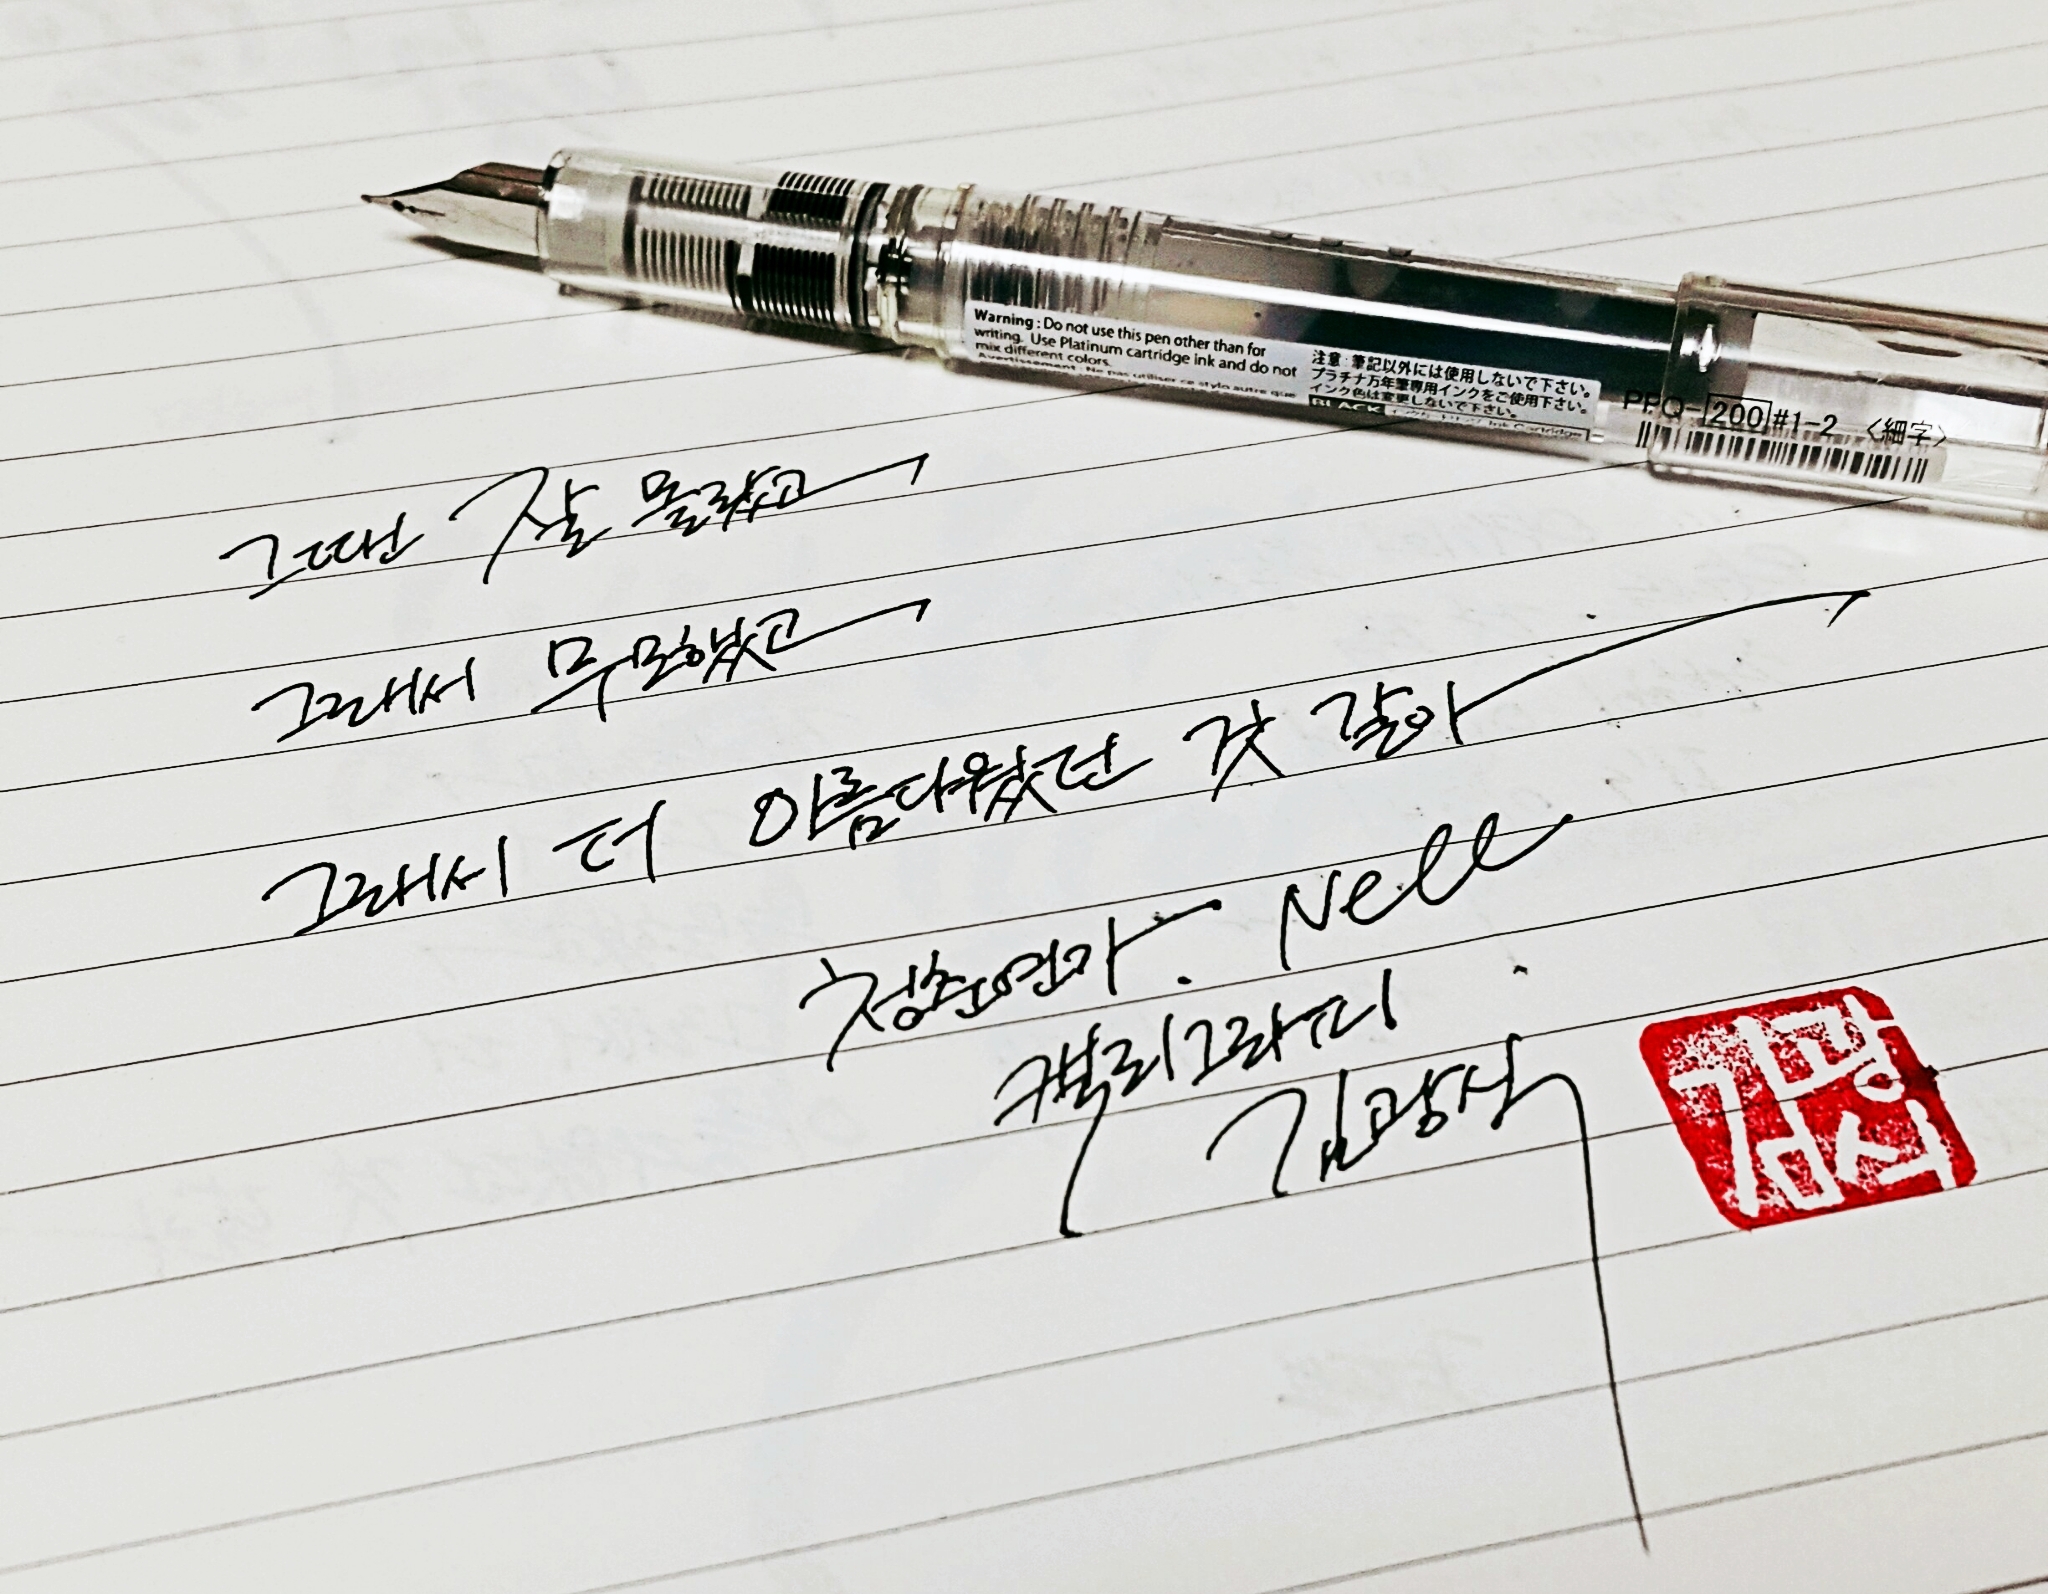 Warning : Do not use this pen other than for
writing. Use Platinum cartridge ink and do not
mix different colors.
Avertissement : Ne pas utiliser ce stylo autre que
注意:筆記以外には使用しないで下さい。
プラチナ万年筆専用インクをご使用下さい。
インク色は変更しないで下さい。
BLACK Ink Cartridge
PPQ-200#1-2 〈細字〉
그땐 잘 몰랐고
그래서 무모했고
그래서 더 아름다웠던 것 같아
청춘연가. Nell
캘리그라피
김광식
김광식